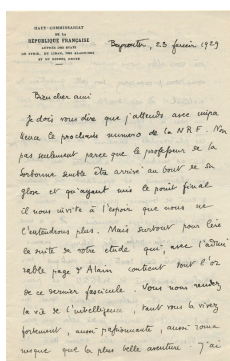 HAUT-COMMISSARIAT
DE LA
RÉPUBLIQUE FRANÇAISE
AUPRÈS DES ÉTATS
DE SYRIE, DU LIBAN, DES ALAOUITES
ET DU DJEBEL DRUZE
Beyrouth, 23 février 1929
Bien cher ami
Je dois vous dire que j'attends avec impa
tience le prochain numéro de la N.R.F. Non
pas seulement parce que le professeur de la
Sorbonne semble être arrivé au bout de sa
glose et qu'ayant mis le point final
il nous invite à l'espoir que nous ne
l'entendrons plus. Mais surtout pour lire
la suite de votre étude qui, avec l'admi
rable page d'Alain contient tout l'or
de ce dernier fascicule. Vous nous rendez
la vie de l'intelligence, tant vous la vivez
fortement, aussi passionnante, aussi roma
nesque que la plus belle aventure. J'ai